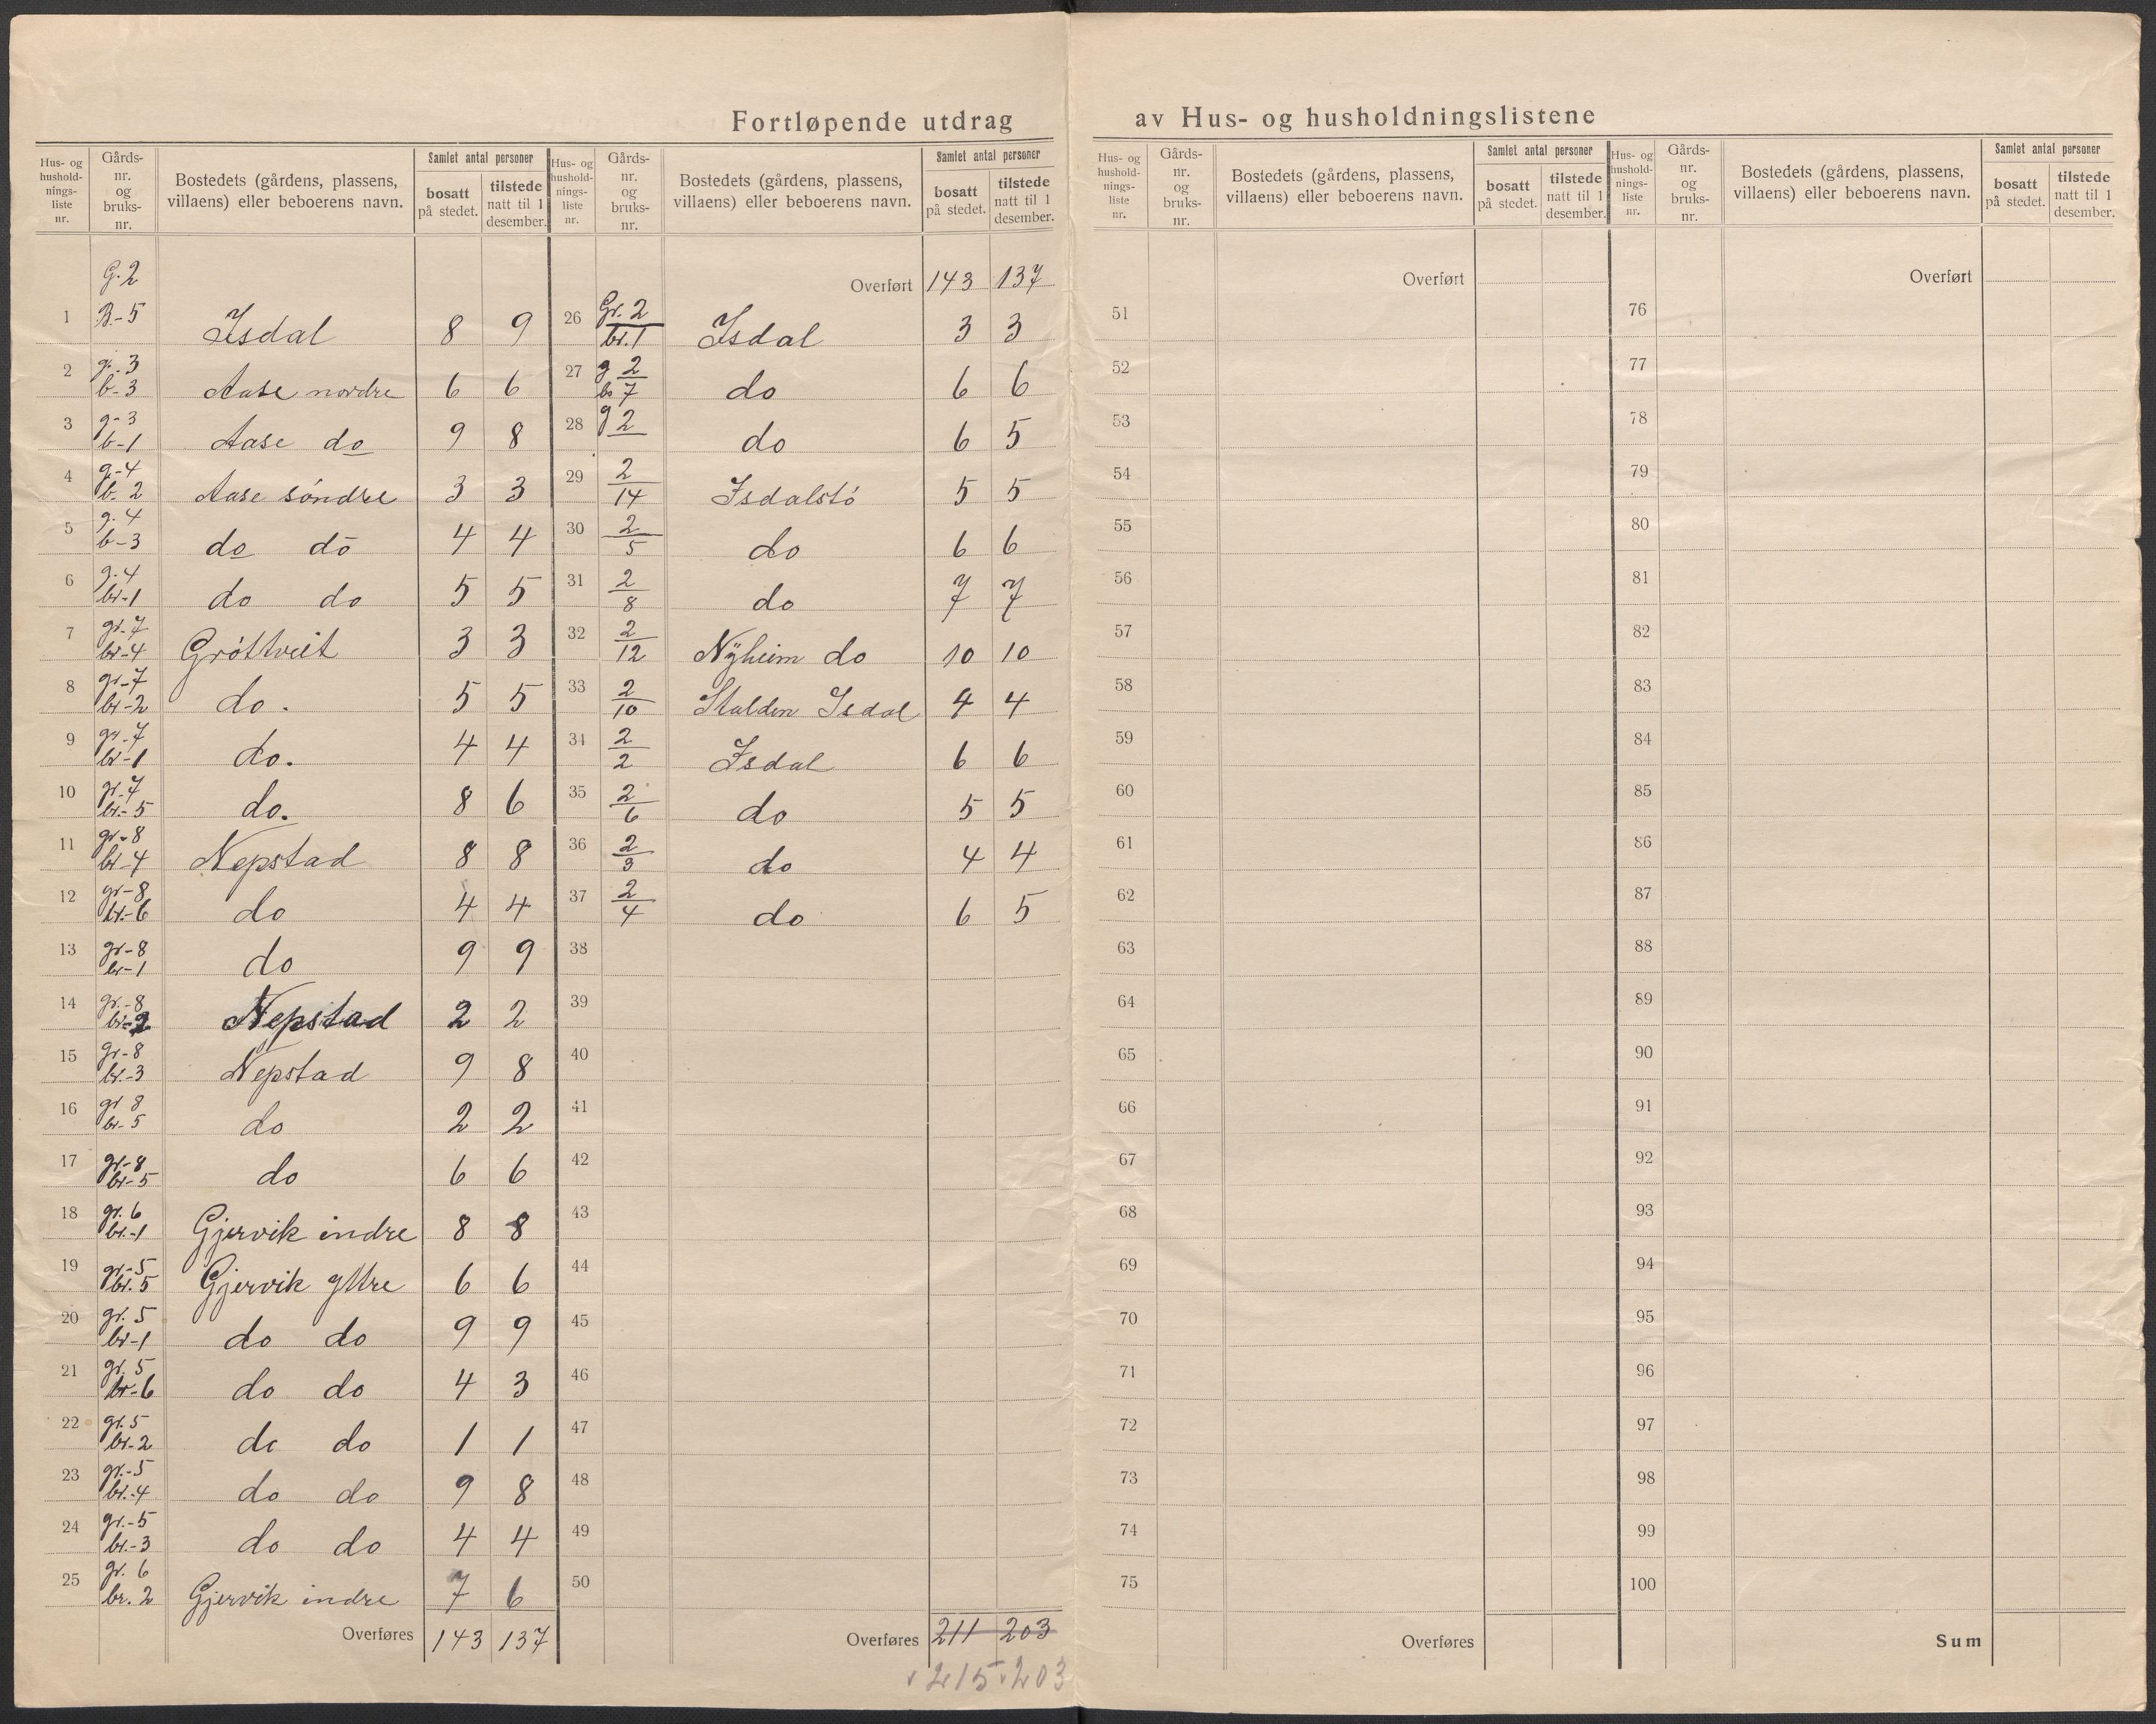 Fortløpende utdrag av Hus- og husholdningslistene
Hus- og hushold-nings-liste nr. | Gårds-nr. og bruks-nr. | Bostedets (gårdens, plassens, villaens) eller beboerens navn. | Samlet antal personer | bosatt på stedet. | tilstede natt til 1 desember.
1 | G. 2 B.-5 | Isdal | 8 | 9
2 | gr. 3 b-3 | Aase nordre | 6 | 6
3 | g-3 b-1 | Aase do | 9 | 8
4 | g-4 b-2 | Aase söndre | 3 | 3
5 | g. 4 b-3 | do do | 4 | 4
6 | g. 4 br-1 | do do | 5 | 5
7 | gr-7 br-4 | Gröttveit | 3 | 3
8 | gr-7 br-2 | do. | 5 | 5
9 | gr-7 br-1 | do. | 4 | 4
10 | gr. 7 br.-5 | do. | 8 | 6
11 | gr-8 br-4 | Nepstad | 8 | 8
12 | gr-8 br.-6 | do | 4 | 4
13 | gr-8 br-1 | do | 9 | 9
14 | gr.-8 br-2 | Nepstad | 2 | 2
15 | gr-8 br.-3 | Nepstad | 9 | 8
16 | gr 8 br-5 | do | 2 | 2
17 | gr-8 br-5 | do | 6 | 6
18 | gr. 6 br.-1 | Gjervik indre | 8 | 8
19 | gr-5 br. 5 | Gjervik yttre | 6 | 6
20 | gr. 5 br-1 | do do | 9 | 9
21 | gr. 5 br-6 | do do | 4 | 3
22 | gr. 5 br-2 | do do | 1 | 1
23 | gr.-5 br.-4 | do do | 9 | 8
24 | gr.-5 br.-3 | do do | 4 | 4
25 | gr. 6 br. 2 | Gjervik indre | 7 | 6
Overføres | 143 | 137
Hus- og hushold-nings-liste nr. | Gårds-nr. og bruks-nr. | Bostedets (gårdens, plassens, villaens) eller beboerens navn. | Samlet antal personer | bosatt på stedet. | tilstede natt til 1 desember.
Overført | 143 | 137
26 | Gr. 2 br. 1 | Isdal | 3 | 3
27 | g 2 b 7 | do | 6 | 6
28 | g 2 | do | 6 | 5
29 | 2 14 | Isdalstö | 5 | 5
30 | 2 5 | do | 6 | 6
31 | 2 8 | do | 7 | 7
32 | 2 12 | Nyheim do | 10 | 10
33 | 2 10 | Stalden Isdal | 4 | 4
34 | 2 2 | Isdal | 6 | 6
35 | 2 6 | do | 5 | 5
36 | 2 3 | do | 4 | 4
37 | 2 4 | do | 6 | 5
38
39
40
41
42
43
44
45
46
47
48
49
50
Overføres | 211 | 203
215 203
Hus- og hushold-nings-liste nr. | Gårds-nr. og bruks-nr. | Bostedets (gårdens, plassens, villaens) eller beboerens navn. | Samlet antal personer | bosatt på stedet. | tilstede natt til 1 desember.
Overført
51
52
53
54
55
56
57
58
59
60
61
62
63
64
65
66
67
68
69
70
71
72
73
74
75
Overføres
Hus- og hushold-nings-liste nr. | Gårds-nr. og bruks-nr. | Bostedets (gårdens, plassens, villaens) eller beboerens navn. | Samlet antal personer | bosatt på stedet. | tilstede natt til 1 desember.
Overført
76
77
78
79
80
81
82
83
84
85
86
87
88
89
90
91
92
93
94
95
96
97
98
99
100
Sum